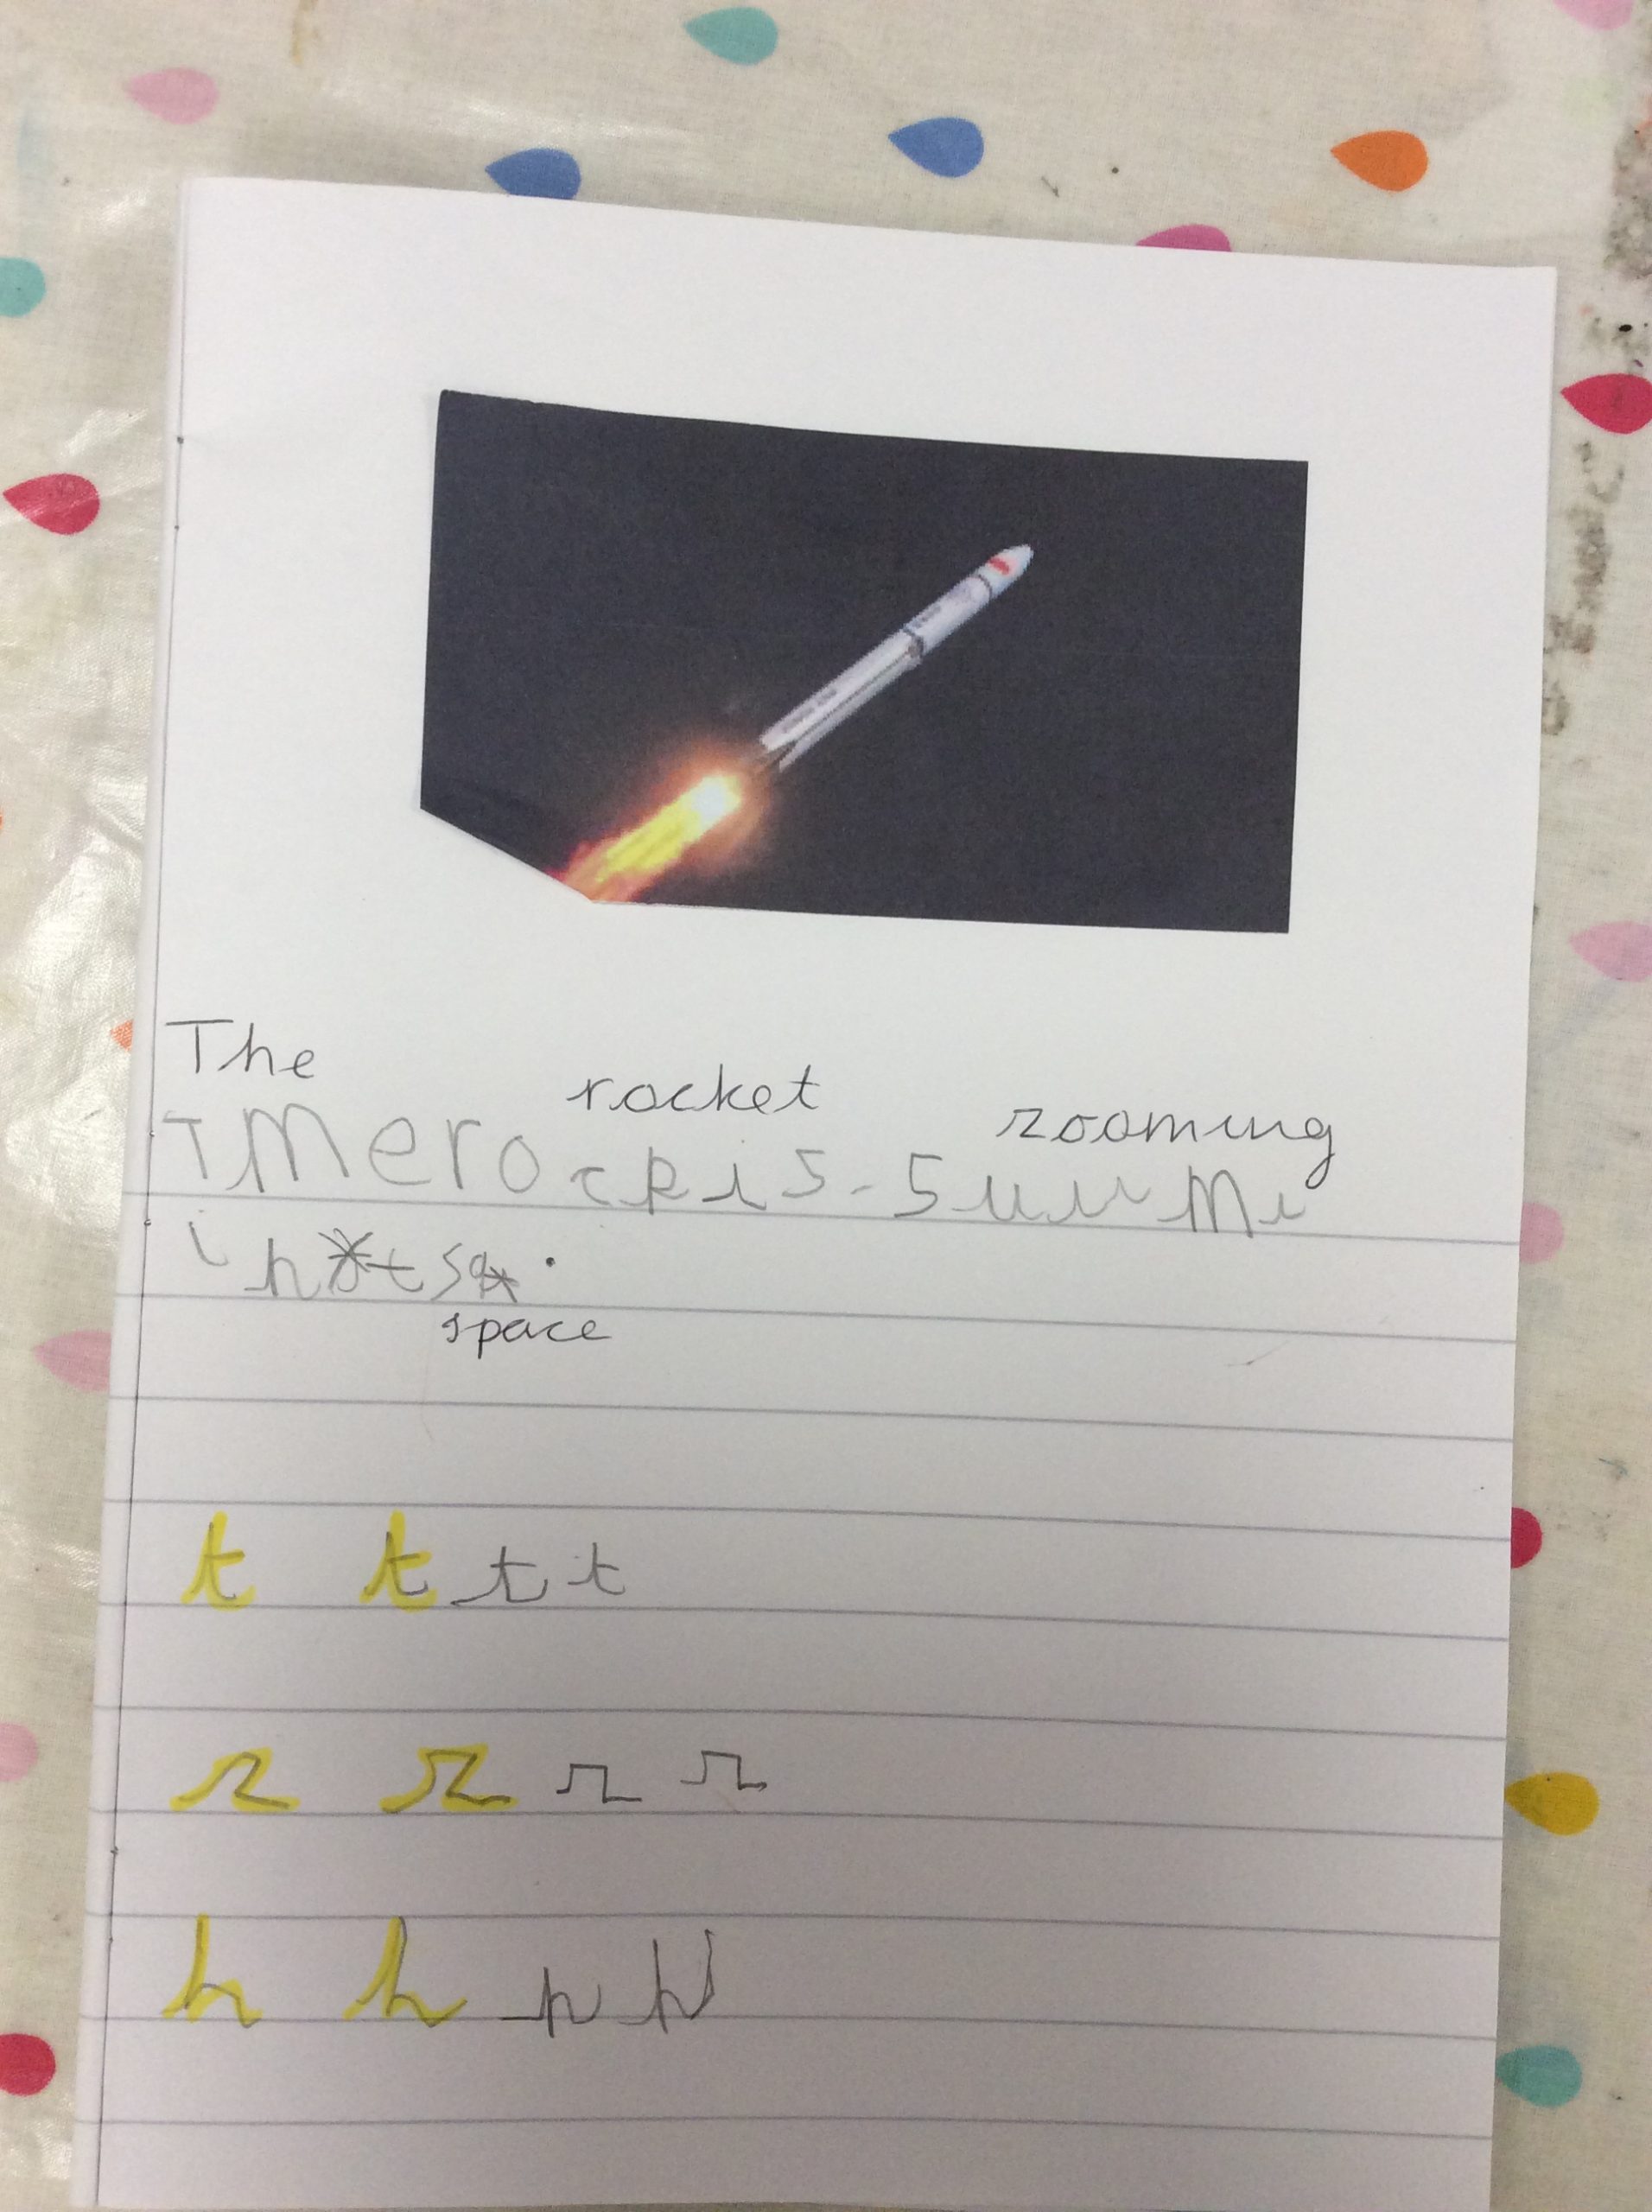 The
rocket
zooming
TMerockis-suuMi
intsa.
space
t t t t
z z z z
h h h h